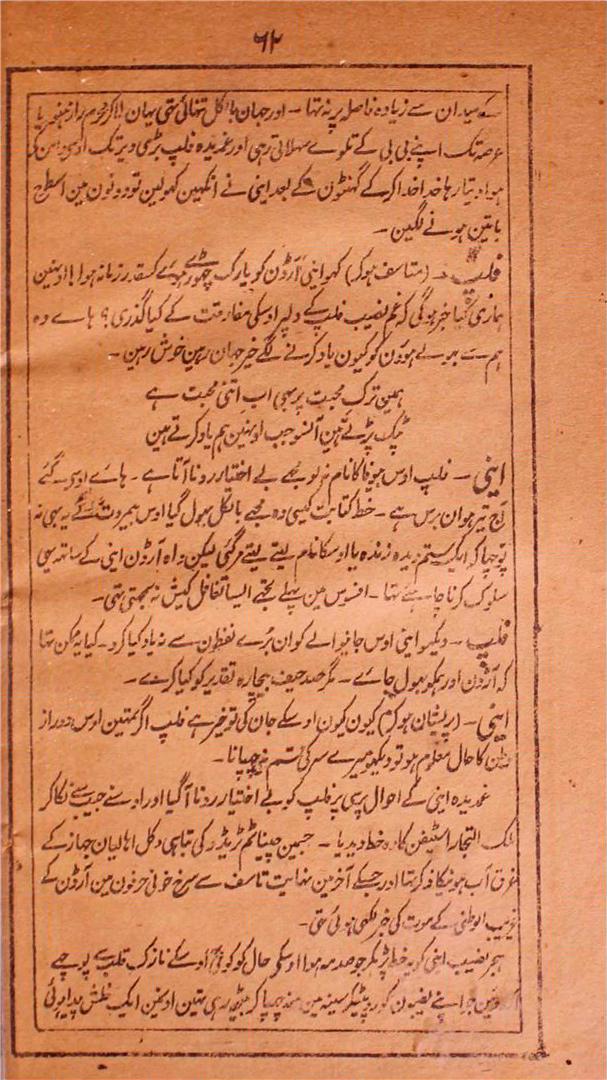 ۶۲
کے میدان سے زیادہ فاصلہ پر نہ تہا ۔ اور جہان بالکل تنہائی تہی یہان لاکر محرم راز
عرصہ تک اپنے بی بی کے تلوے سہلاتی رہی اور غمزیدہ فلپ بڑی دیر تک اوسی دامن کی
ہوا دیتا رہا خدا خدا کرکے گھنٹون کے بعد اینی نے انکھین کہولین تو دونون مین اسطرح
باتین ہونے لگین ۔
فلپ ۔ (متاسف ہوکر) کہو اینی آرڈن کو یارک چھوڑے ہوے کسقدر زمانہ ہوا ! اونہین
ہماری کیا خبر ہوگی کہ غم نصیب فلپ کے دلپر اوسکی مفارقت کے کیا گذری ؟ ہاے وہ
ہم سے بہولے ہوون کو کیون یاد کرنے لگے خیر جہان رہین خوش رہین ۔
ہمین ترک محبت پر بہی اب اتنی محبت ہے
ٹپک پڑتے ہین آنسو جب اونہین ہم یاد کرتے ہین
اینی ۔ فلپ اوس بیوفا کا نام نہ لو مجھے بے اختیار رونا آتا ہے ۔ ہاے اوسے گئے
آج تیرہوان برس ہے ۔ خط کتابت کیسی وہ مجھے بالکل بہول گیا اوس بیمروت نے یہ بہی نہ
پوچہا کہ ایک ستم دیدہ زندہ یا اوسکا نام لیتے لیتے مرگئی لیکن واہ آرڈن اینی کے ساتہہ یہی
سلوک کرنا چاہئے تہا ۔ افسوس مین پہلے تجھے ایسا تغافل کیش نہ سمجہتی تہی ۔
فلپ ۔ دیکہو اینی اوس جانیوالے کو ان بُرے لفظون سے نہ یاد کیا کرو ۔ کیا یہ ممکن تہا
کہ آرڈن اور ہمکو بہول جاے ۔ مگر صد حیف بیچارہ تقدیر کو کیا کرے ۔
اینی ۔ (پریشان ہوکر) کیون کیون اوسکے جان کی تو خیر ہے فلپ اگر تمہین اوس دور از
وطن کا حال معلوم ہو تو دیکہو میرے سر کی قسم نہ چہپانا ۔
غمزیدہ اینی کے احوال پرسی پر فلپ کو بے اختیار رونا آگیا اور اوسنے جیب سے نکالکر
ملک التجار اسٹیفن کا وہ خط دیدیا ۔ جسمین ٹریڈر کی تباہی و کل اہالیان جہاز کے
غرق آب ہونیکا ذکر تہا اور جسکے آخر مین نہایت تاسف سے سرخ خونی حرفون مین آرڈن کے
غریب الوطنی کے موت کی خبر لکھی ہوئی تہی ۔
ہجر نصیب اینی کو یہ خط پڑہکر جو صدمہ ہوا اوسکی حال کو کوئی اوسکے نازک قلب سے پوچہے
جو اپنے نصیبون کو رو پیٹکر سینہ مین منہ چہپا کر بیٹھ رہی تہین اونہین ایک خلش پیدا ہوئی